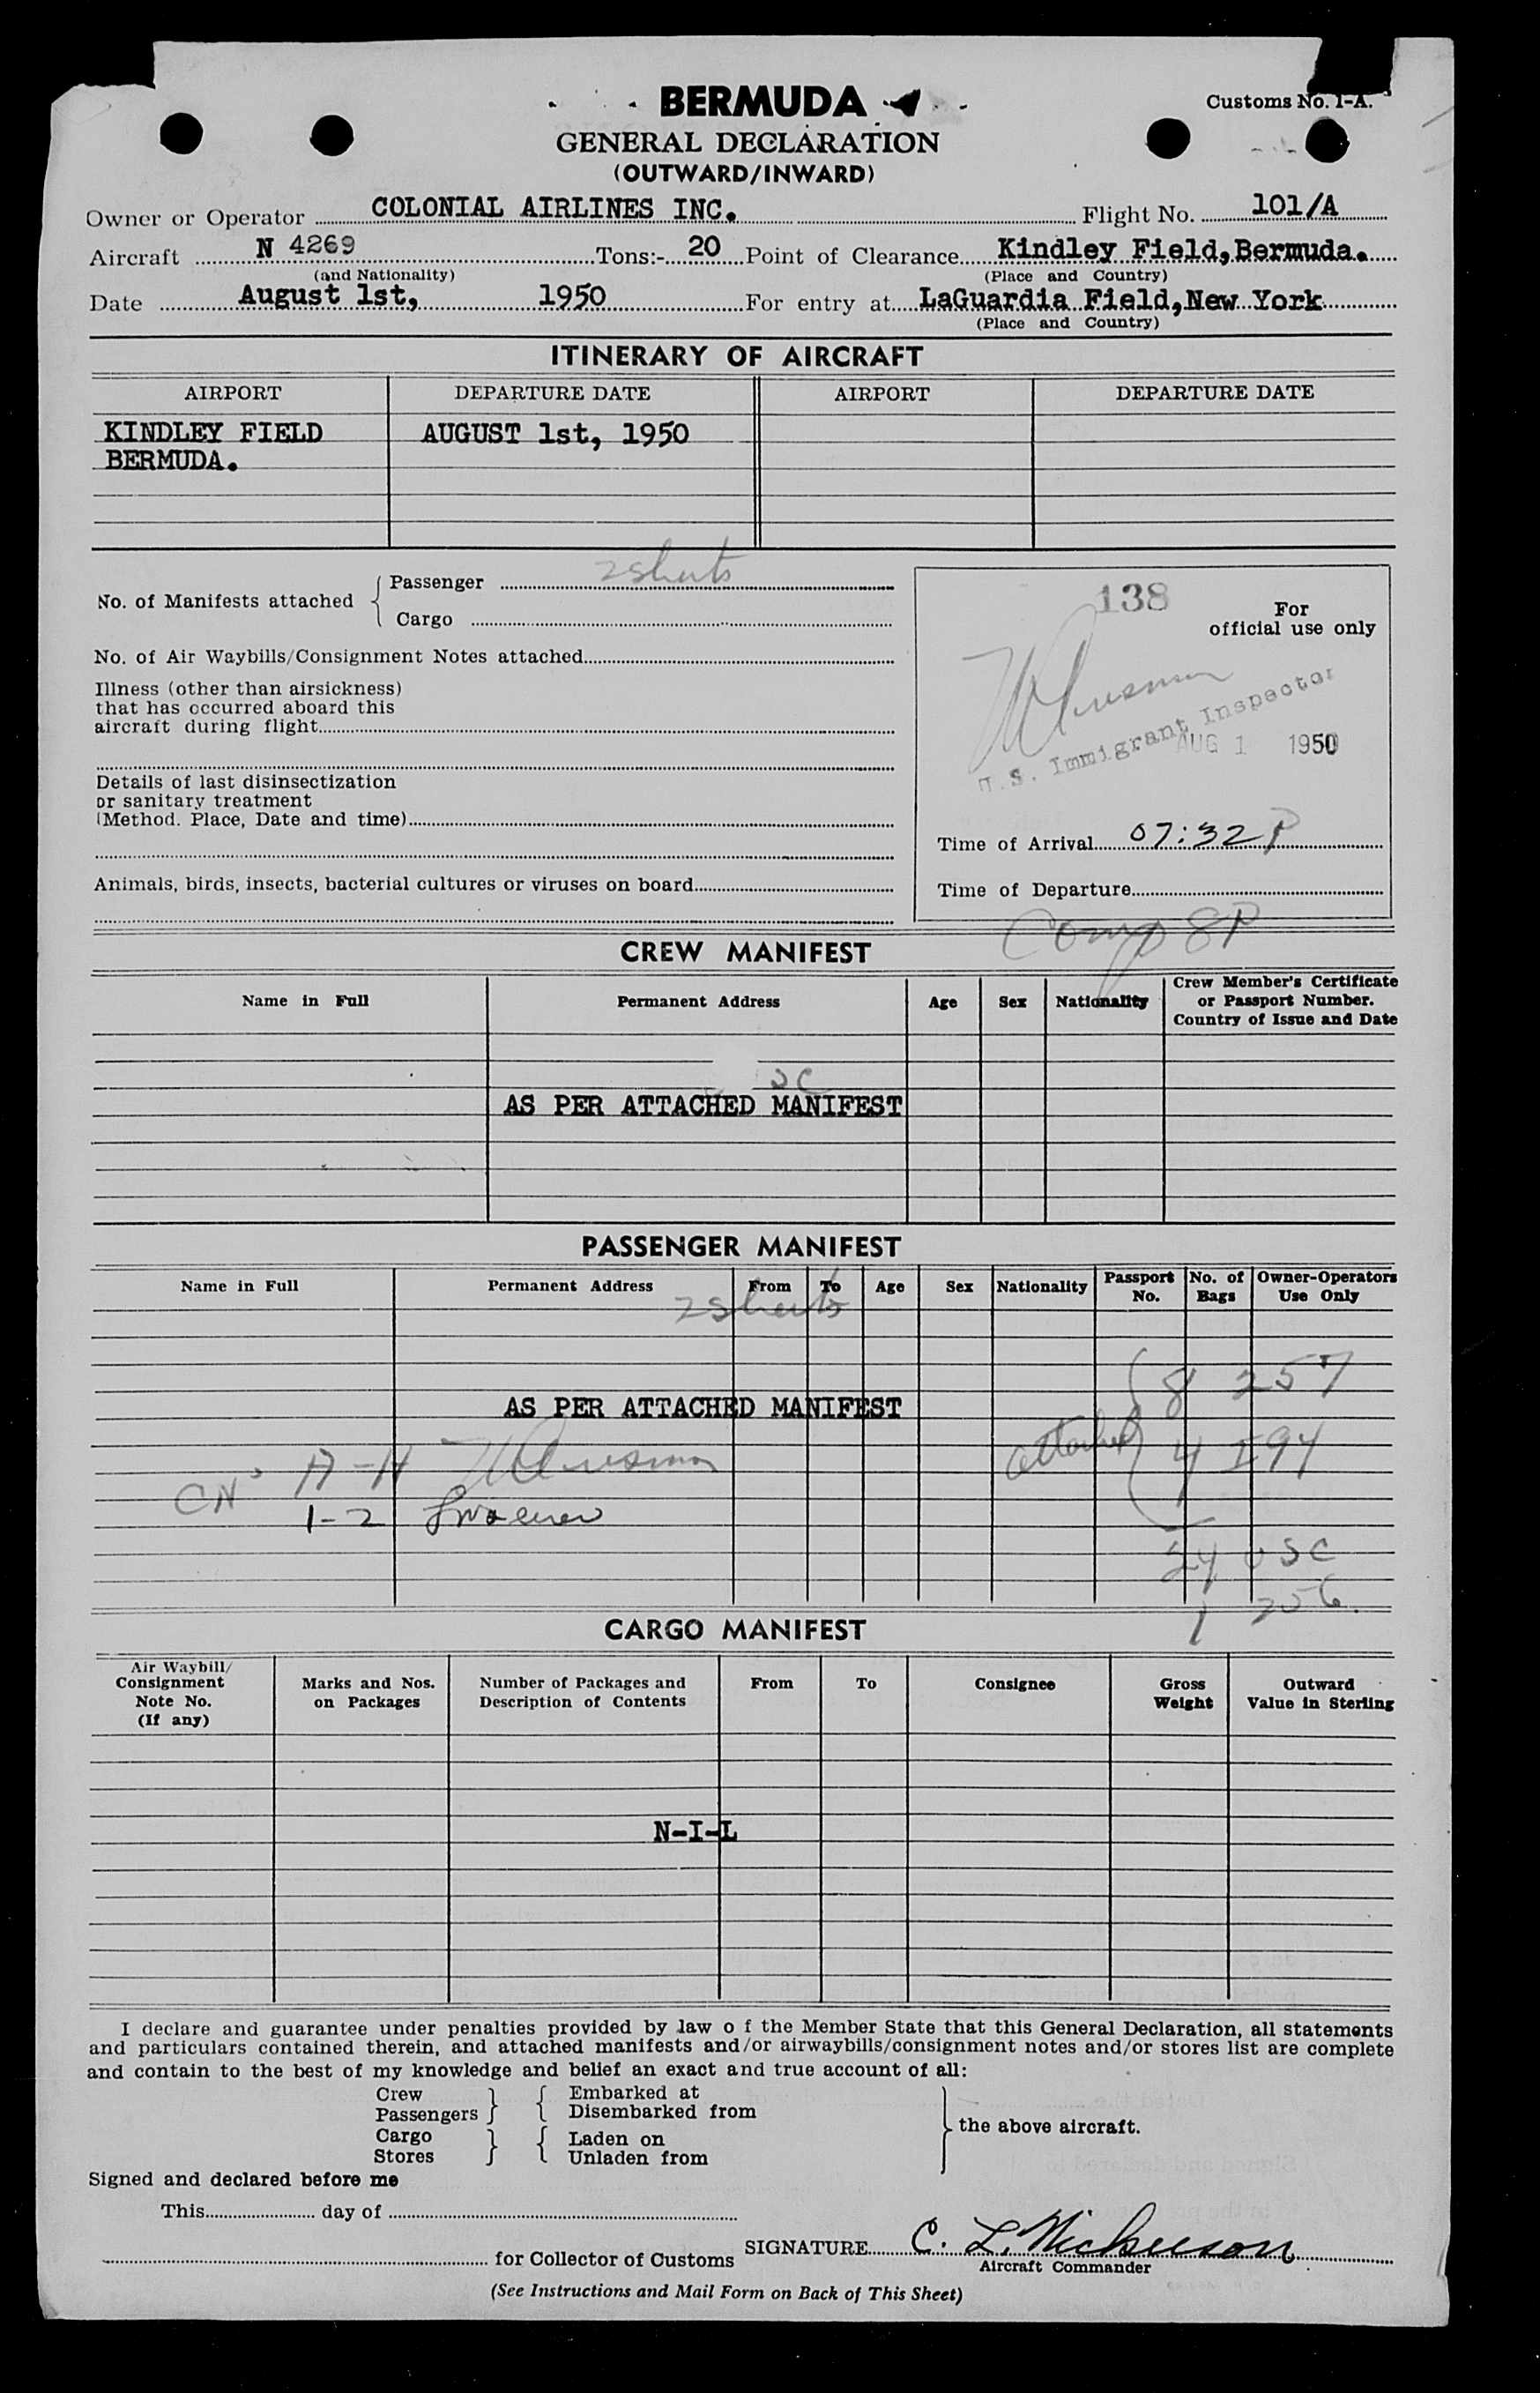 BERMUDA
Customs No. 1-A.
GENERAL DECLARATION
(OUTWARD/INWARD)
Owner or Operator COLONIAL AIRLINES INC. Flight No. 101/A
Aircraft N 4269 Tons:- 20 Point of Clearance Kindley Field, Bermuda.
(and Nationality) (Place and Country)
Date August 1st, 1950 For entry at LaGuardia Field, New York
(Place and Country)
ITINERARY OF AIRCRAFT
AIRPORT DEPARTURE DATE AIRPORT DEPARTURE DATE
KINDLEY FIELD AUGUST 1st, 1950
BERMUDA.
No. of Manifests attached { Passenger 2 sheets
Cargo
No. of Air Waybills/Consignment Notes attached
Illness (other than airsickness)
that has occurred aboard this
aircraft during flight
Details of last disinsectization
or sanitary treatment
(Method. Place, Date and time)
Animals, birds, insects, bacterial cultures or viruses on board
138
For
official use only
U.S. Immigrant Inspector
AUG 1 1950
Time of Arrival 07:32 P
Time of Departure
Comp 8P
CREW MANIFEST
Name in Full Permanent Address Age Sex Nationality Crew Member's Certificate
or Passport Number.
Country of Issue and Date
SC
AS PER ATTACHED MANIFEST
PASSENGER MANIFEST
Name in Full Permanent Address From To Age Sex Nationality Passport No. No. of Bags Owner-Operators Use Only
2 sheets
8 257
AS PER ATTACHED MANIFEST
attached 4 I94
CN's A-H
1-2
24 USC
1 256.
CARGO MANIFEST
Air Waybill/
Consignment
Note No.
(If any)
Marks and Nos.
on Packages
Number of Packages and
Description of Contents
From To Consignee
Gross
Weight
Outward
Value in Sterling
N-I-L
I declare and guarantee under penalties provided by law o f the Member State that this General Declaration, all statements
and particulars contained therein, and attached manifests and/or airwaybills/consignment notes and/or stores list are complete
and contain to the best of my knowledge and belief an exact and true account of all:
Crew } { Embarked at
Passengers } { Disembarked from
} the above aircraft.
Cargo } { Laden on
Stores } { Unladen from
Signed and declared before me
This day of
for Collector of Customs
SIGNATURE C. L. Nickerson
Aircraft Commander
(See Instructions and Mail Form on Back of This Sheet)